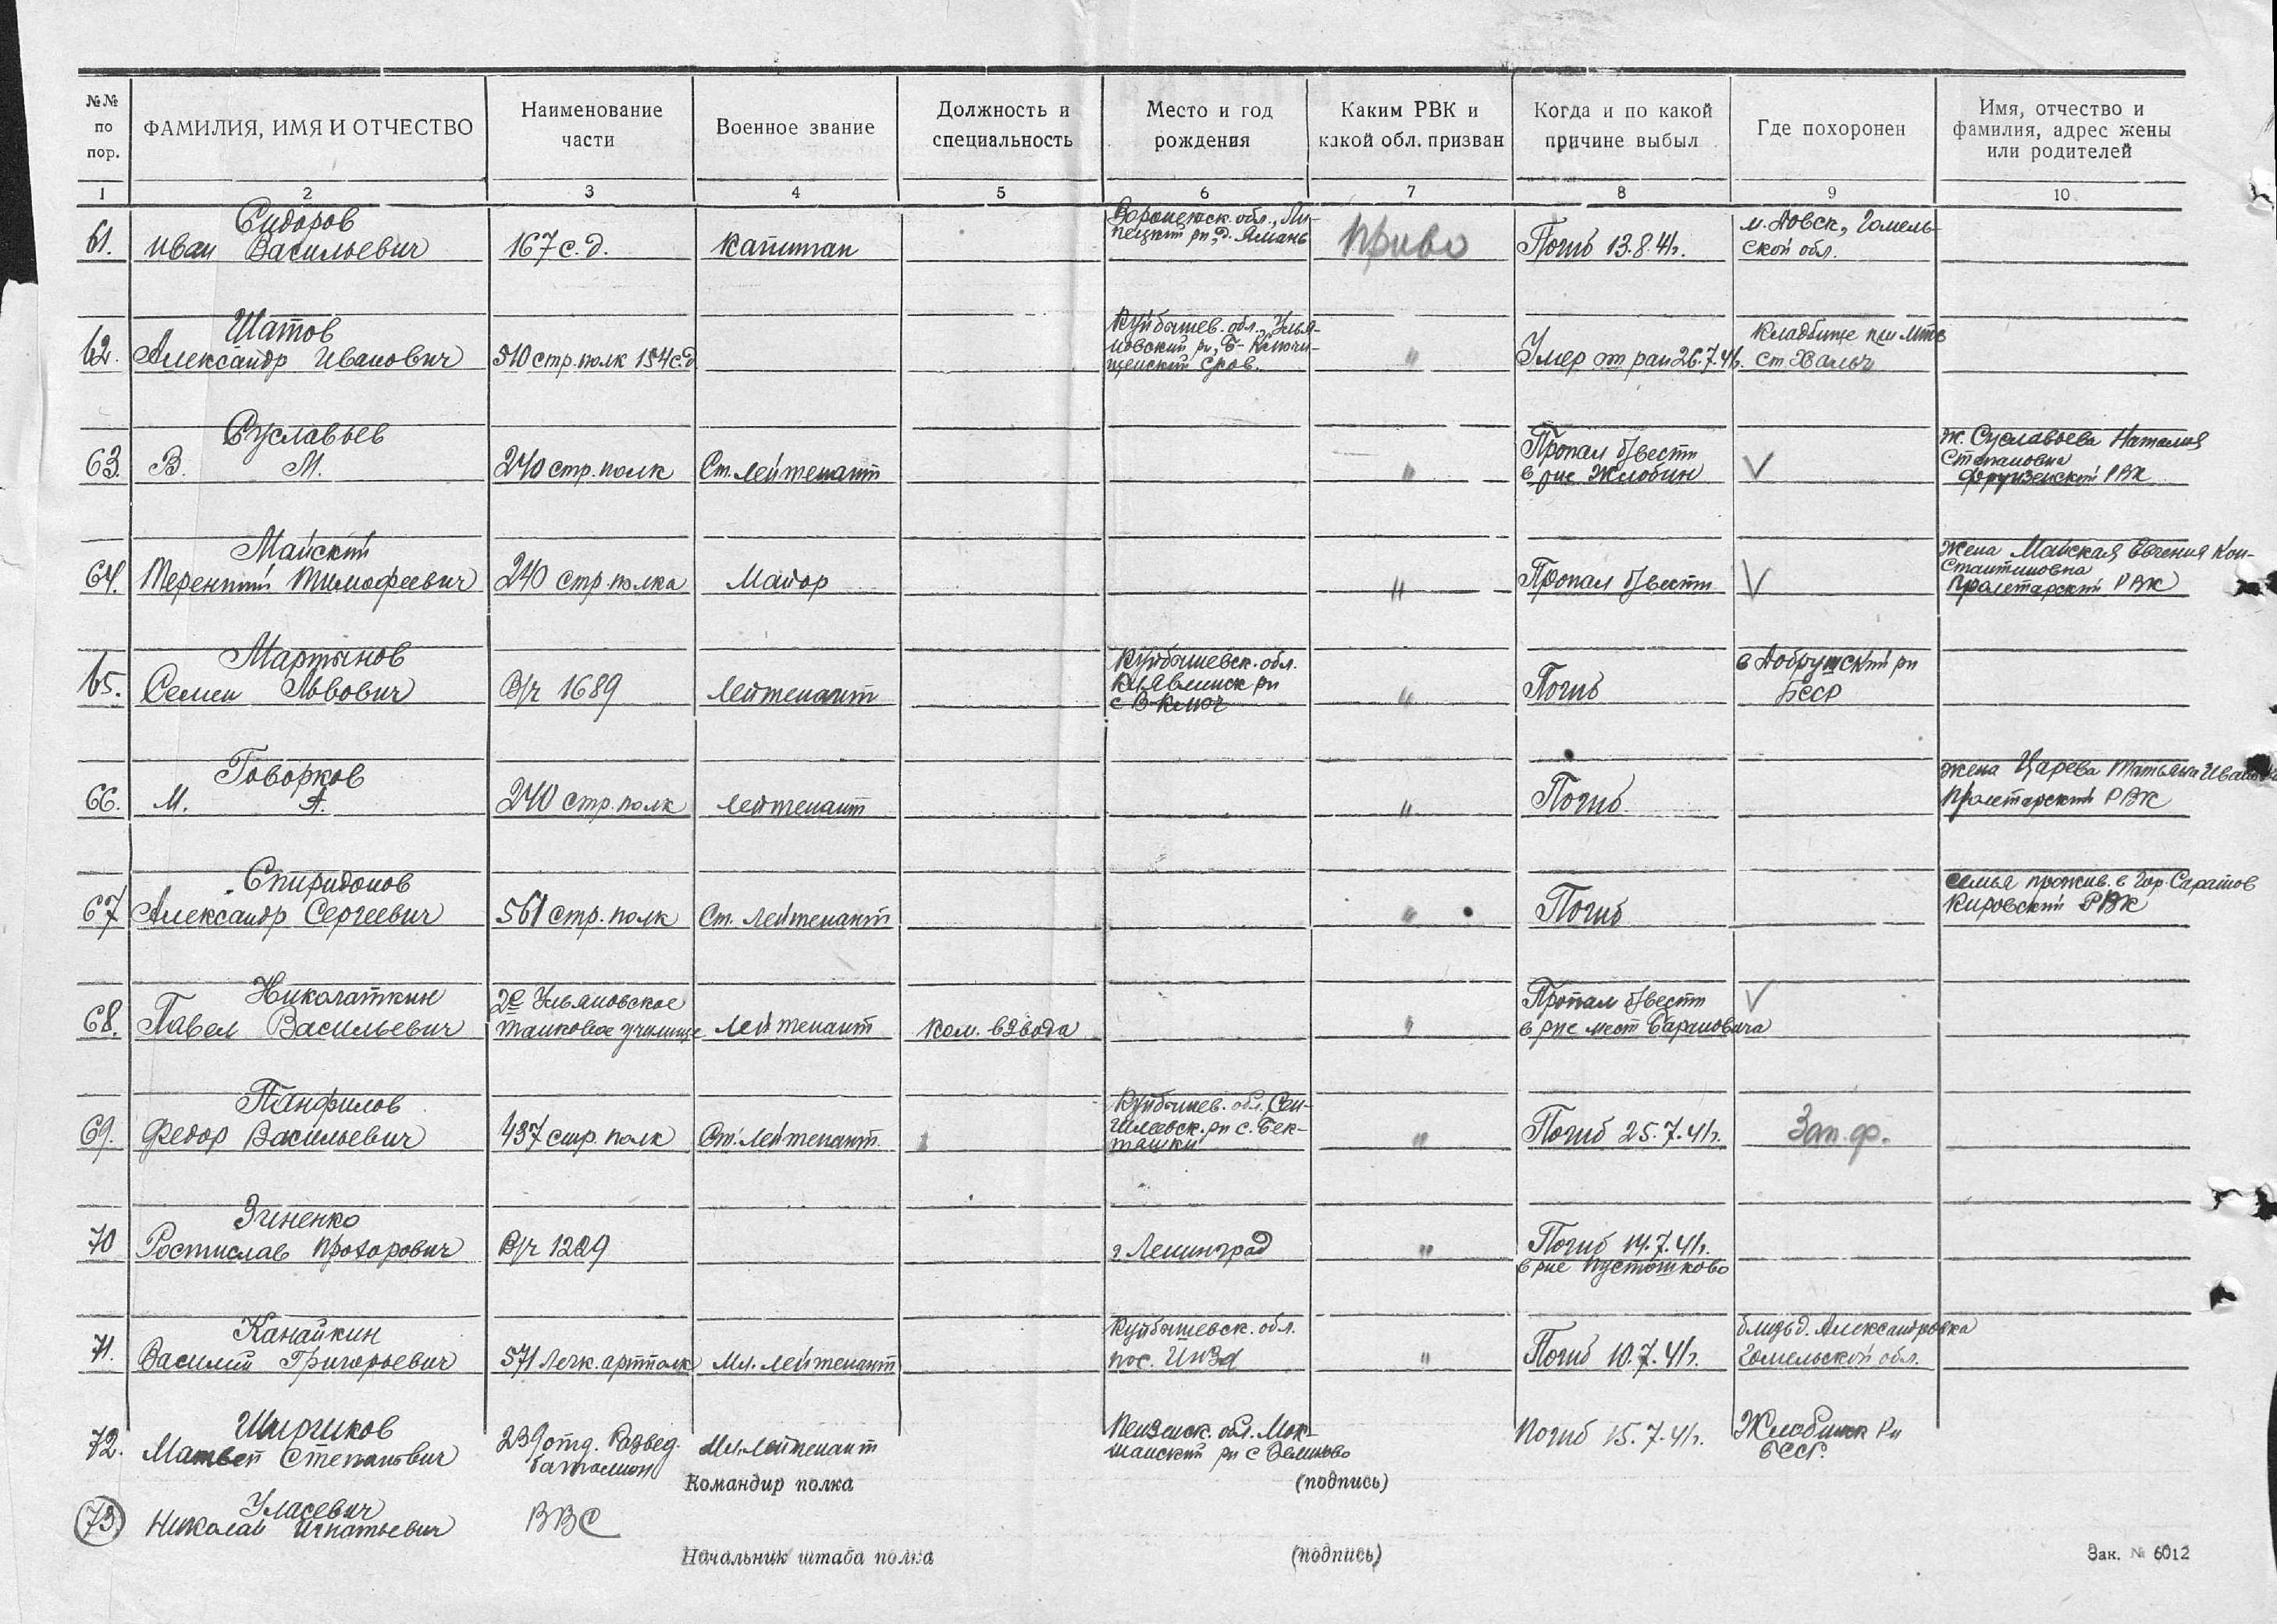 №№ по пор.
ФАМИЛИЯ, ИМЯ И ОТЧЕСТВО
Наименование части
Военное звание
Должность и специальность
Место и год рождения
Каким РВК и какой обл. призван
Когда и по какой причине выбыл
Где похоронен
Имя, отчество и фамилия, адрес жены или родителей
1 2 3 4 5 6 7 8 9 10
61. Сидоров
Иван Васильевич
167 с.д.
Капитан
Воронежск. обл., Ли-
пецкий рн, д. Ямань
Приво
Погиб 13.8.41г.
м. Довск, Гомель-
ской обл.
62. Шатов
Александр Иванович
510 стр. полк 154 с.д.
Куйбышев. обл., Улья-
новский рн, Б-Ключи-
щенский
"
Умер от ран 26.7.41г.
Кладбище при
ст. Хальч
63. Суславьев
В. М.
240 стр. полк
Ст. лейтенант
"
Пропал б/вести
в рне Жлобин
V
ж. Суславьева Наталия
Степановна
Фрунзенский РВК
64. Майский
Терентий Тимофеевич
240 стр. полка
Майор
"
Пропал б/вести
V
Жена Майская Евгения Кон-
стантиновна
Пролетарский РВК
65. Мартынов
Семен Львович
В/ч 1689
Лейтенант
Куйбышевск. обл.
Клявлинск рн
с В-Ключ
"
Погиб
в Добрушский рн
БССР
66. Говорков
М. А.
240 стр. полк
Лейтенант
"
Погиб
Жена Царева Татьяна
Пролетарский РВК
67 Спиридонов
Александр Сергеевич
561 стр. полк
Ст. лейтенант
"
Погиб
Семья прожив. в гор. Саратов
Кировский РВК
68. Николаткин
Павел Васильевич
2е Ульяновское
танковое училище
Лейтенант
Ком. взвода
"
Пропал б/вести
в рне мест Барановича
V
69. Панфилов
Федор Васильевич
437 стр. полк
Ст. лейтенант.
Куйбышев. обл. Сен-
гилеевск. рн с. Бек-
тяшки
"
Погиб 25.7.41г.
Зап. ф.
70 Зиненко
Ростислав Прохорович
В/ч 1229
г. Ленинград
"
Погиб 14.7.41г.
в рне Пустошково
71. Канайкин
Василий Григорьевич
571 легк. артполк
Мл. лейтенант
Куйбышевск. обл.
пос. Инза
"
Погиб 10.7.41г.
близь д. Александровка
Гомельской обл.
72. Ширшиков
Матвей Степанович
239 отд. развед.
батальон
Мл. лейтенант
Пензенск. обл. Мок-
шанский рн с
Погиб 15.7.41г.
Жлобинск рн
БССР.
Командир полка (подпись)
73 Уласевич
Николай Игнатьевич
ВВС
Начальник штаба полка (подпись)
Зак. № 6012